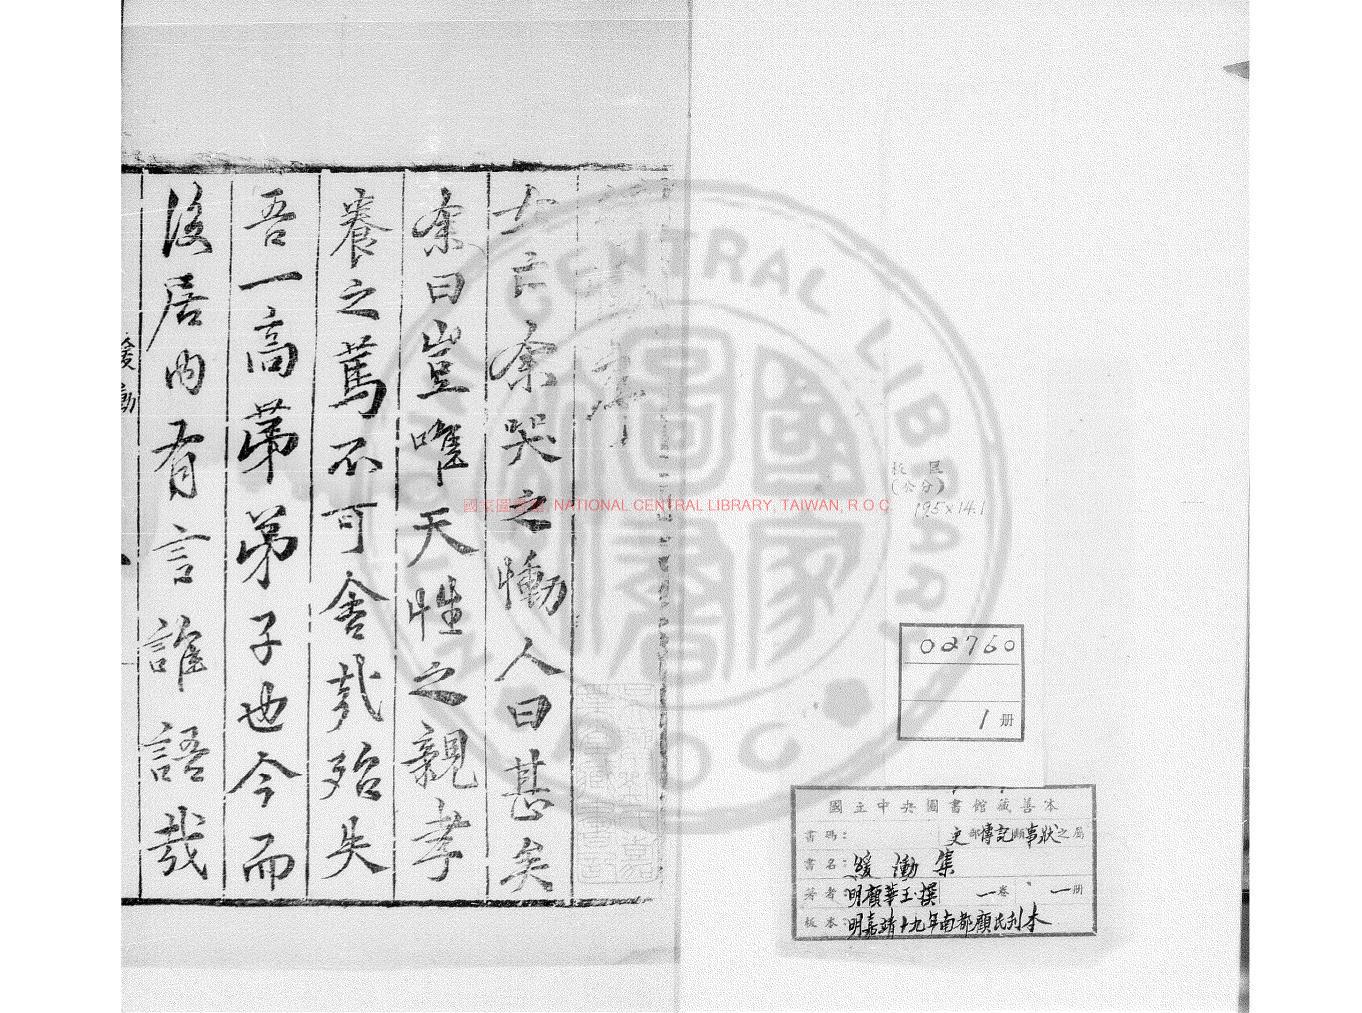 女亡余哭之慟人曰甚矣
余曰豈唯天性之親孝
養之篤不可舍哉殆失
吾一高第弟子也今而
後居內有言誰語哉
緩慟
國家圖書館 NATIONAL CENTRAL LIBRARY, TAIWAN, R.O.C.
NATIONAL CENTRAL LIBRARY
R O C
國家圖書
板匡
(公分)
19.5×14.1
02760
1 册
國立中央圖書館藏善本
書碼： 史部傳記類事狀之屬
書名：緩慟集
著者 明顧華玉撰 一卷 一册
板本：明嘉靖十九年南都顧氏刊本